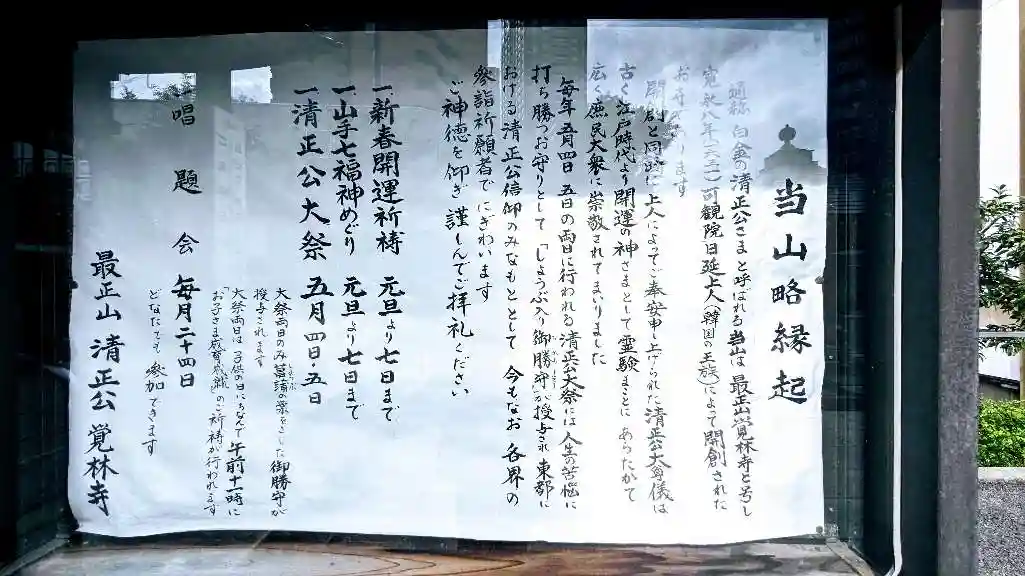 当山略縁起
通称 白金の清正公さまと呼ばれる当山は 最正山覚林寺と号し
寛永八年(一六三一)可観院日延上人(韓国の王族)によって開創された
お寺であります
開創と同時に上人によってご奉安申し上げられた清正公大尊儀は
古く江戸時代より開運の神さまとして霊験まことに あらたかで
広く庶民大衆に崇敬されてまいりました
毎年 五月四日 五日の両日に行われる 清正公大祭には 人生の苦悩に
打ち勝つお守りとして 「しょうぶ入り御勝守」が授与され 東都に
おける清正公信仰のみなもととして 今もなお 各界の
参詣祈願者で にぎわいます
ご神徳を仰ぎ 謹しんでご拝礼ください
一、新春開運祈祷 元旦より七日まで
一、山手七福神めぐり 元旦より七日まで
一、清正公大祭 五月四日・五日
大祭両日のみ菖蒲の葉をさした御勝守が
授与されます
大祭両日は 子供の日にちなんで 午前十一時に
「お子さま成育感謝」のご祈祷が行われます
一、唱題会 毎月二十四日
どなたでも 参加できます
最正山 清正公 覚林寺